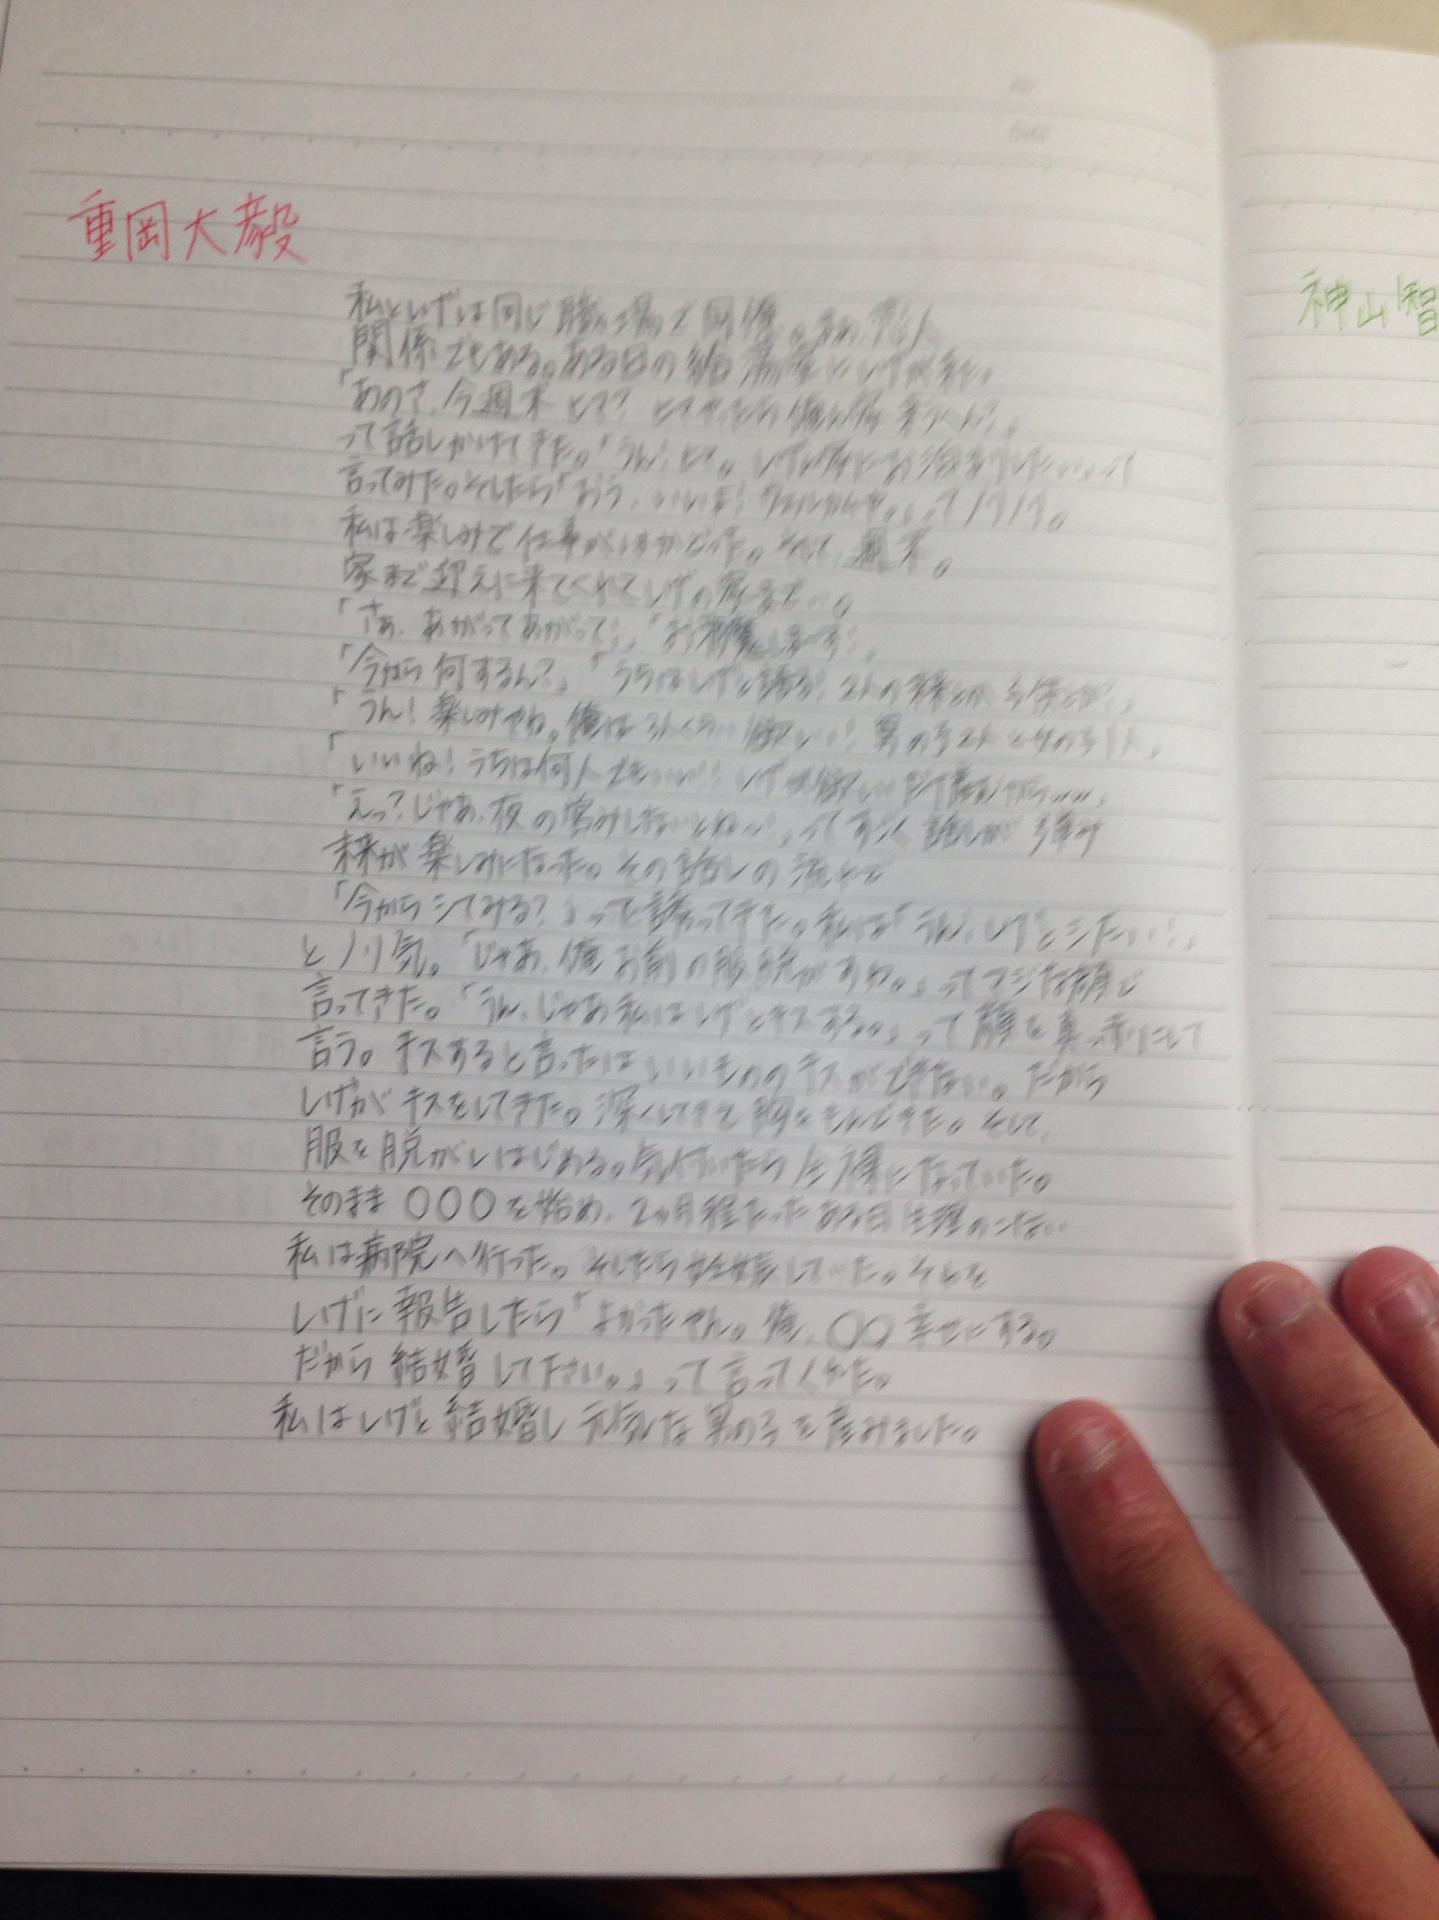 重岡大毅
私としげは同じ職場で同僚。まあ、恋人
関係でもある。ある日の給湯室にしげが来た。
「あのさ、今週末ヒマ?ヒマやったら俺ん家来うへん?」
って話しかけてきた。「うん、ヒマ。しげん家にお泊まりしたい。」って
言ってみた。そしたら「おう、いいよ!ウェルカムや。」ってノリノリ。
私は楽しみで仕事がはかどった。そして、週末。
家まで迎えに来てくれてしげの家まで…。
「さぁ、あがってあがって!」「お邪魔しまーす!」
「今から何するん?」「うちはしげと語る!2人の将来とか、子供とか?」
「うん!楽しみやね。俺は3人くらい欲しい!男の子2人と女の子1人」
「いいね!うちは何人でもいい!しげが欲しいだけ産むから…」
「えっ?じゃあ、夜の営みしないとね…!」ってすごく話しが弾み
未来が楽しみになった。その話しの流れで
「今からシてみる?」って誘ってきた。私は「うん、しげとシたい!」
とノリ気。「じゃあ、俺お前の服脱がすわ。」ってマジな顔で
言ってきた。「うん、じゃあ私はしげとキスする。」って顔を真っ赤にして
言う。キスすると言ったはいいもののキスができない。だから
しげがキスをしてきた。深くしてきて胸をもんできた。そして、
服を脱がしはじめる。気付いたら全裸になっていた。
そのまま○○○を始め、2ヶ月程たったある日生理のこない
私は病院へ行った。そしたら妊娠していた。それを
しげに報告したら「よかったやん。俺、○○幸せにする。
だから結婚して下さい。」って言ってくれた。
私はしげと結婚し元気な男の子を産みました。
神山智